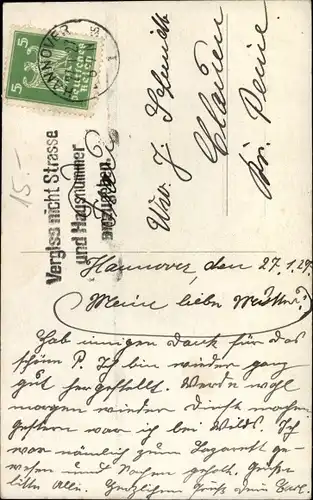 HANNOVER
5 5
Deutsches Reich
Vergiss nicht Strasse
und Hausnummer
anzugeben.
15.-
Ww. J. Schmidt
Clauen
Kr. Peine.
Hannover, den 27.1.29.
Meine liebe Mutter!
Hab innigen Dank für das
schöne P. Ich bin wieder ganz
gut hergestellt. Werde wohl
morgen wieder Dienst machen
gestern war ich bei Wilds. Ich
war nämlich zum Lazarett ge-
wesen und Sachen geholt. Grüße
bitte Alle. Herzlichen Gruß Dein